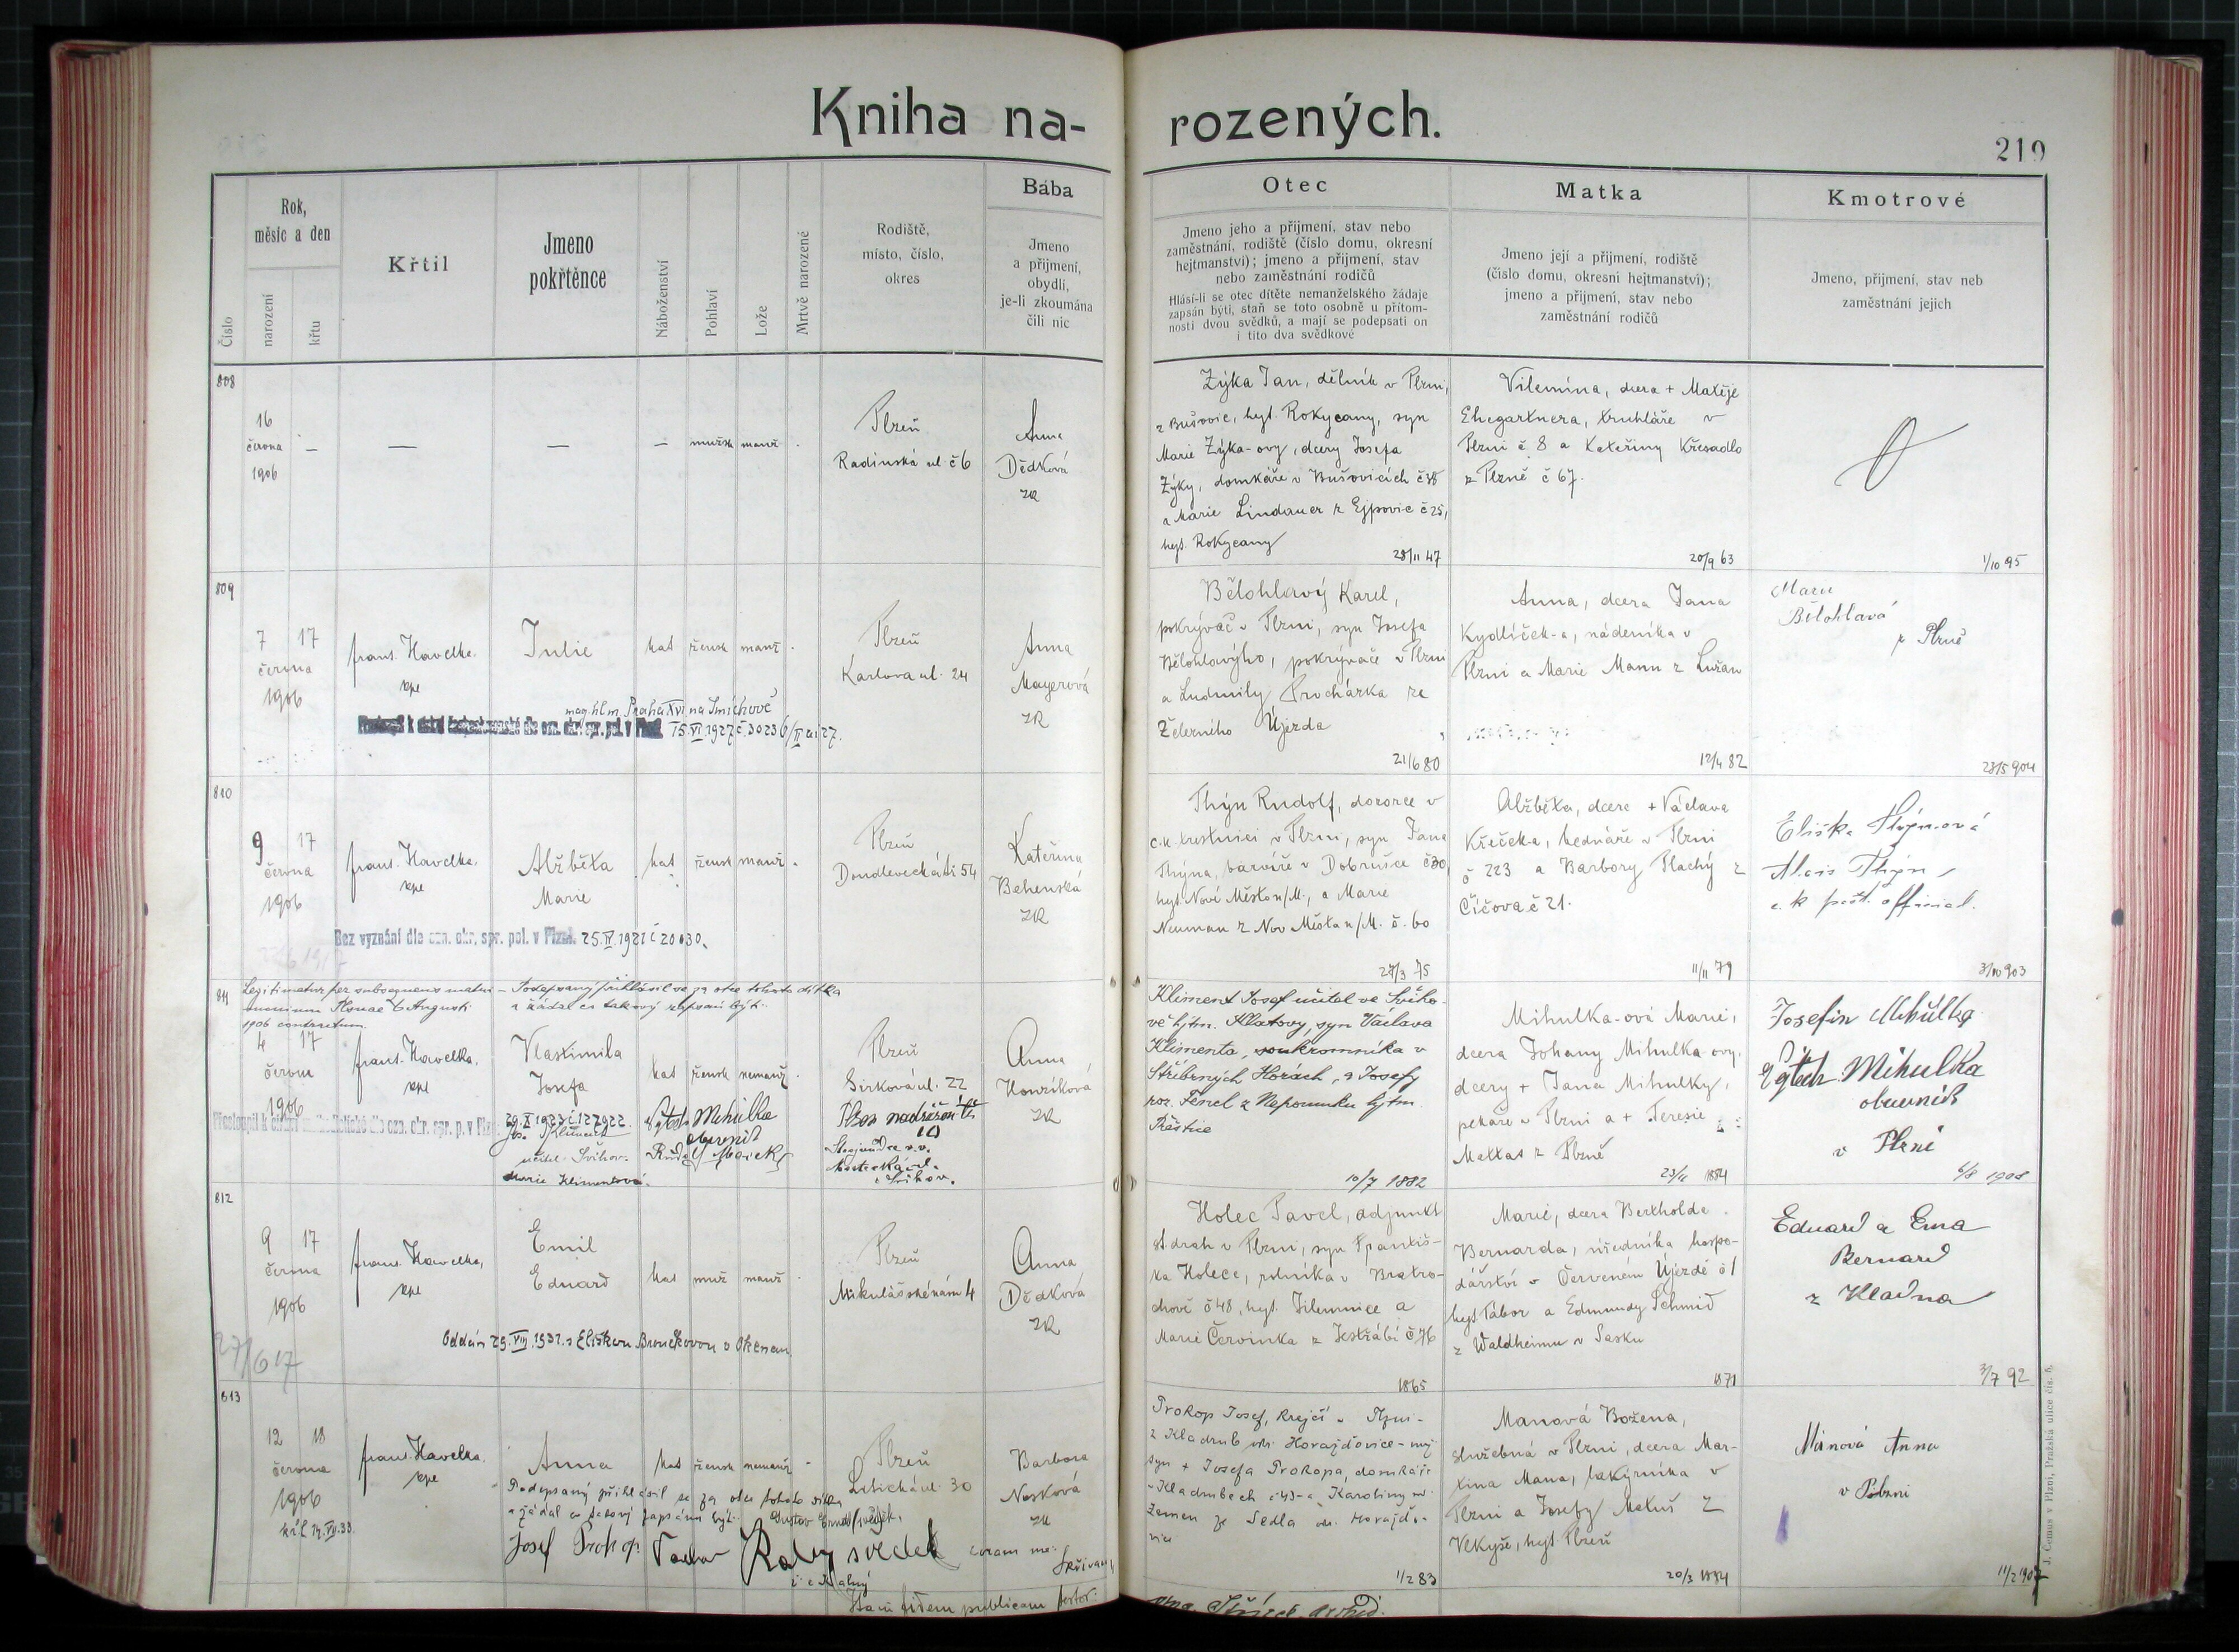 Kniha na-
rozených.
219
Číslo
Rok,
měsíc a den
narození
křtu
Křtil
Jmeno
pokřtěnce
Náboženství
Pohlaví
Lože
Mrtvě narozené
Rodiště,
místo, číslo,
okres
Bába
Jmeno
a přijmení,
obydlí,
je-li zkoumána
čili nic
Otec
Jmeno jeho a přijmení, stav nebo
zaměstnání, rodiště (číslo domu, okresní
hejtmanství); jmeno a přijmení, stav
nebo zaměstnání rodičů
Hlásí-li se otec dítěte nemanželského žádaje
zapsán býti, staň se toto osobně u přítom-
nosti dvou svědků, a mají se podepsati on
i tito dva svědkové
Matka
Jmeno její a přijmení, rodiště
(číslo domu, okresní hejtmanství);
jmeno a přijmení, stav nebo
zaměstnání rodičů
Kmotrové
Jmeno, přijmení, stav neb
zaměstnání jejich
808
16
června
1906
—
—
—
—
mužsk
manž
Plzeň
Radinská ul. č 6
Anna
Dědková
ZR
Zýka Jan, dělník v Plzni,
z Bušovic, hejt. Rokycany, syn
Marie Zýka-ovy, dcery Josefa
Zýky, domkáře v Bušovicích č 38
a Marie Lindauer z Ejpovic č 25,
hejt. Rokycany
28/11 47
Vilemína, dcera + Matěje
Ehegartnera, truhláře v
Plzni č. 8 a Kateřiny Křesadlo
z Plzně č 67.
20/9 63
1/10 95
809
7 17
června
1906
frant. Havelka,
kpl
Julie
kat
žensk
manž
Plzeň
Karlova ul. 24
Anna
Mayerová
ZR
mag. hl. m. Praha XVI na Smíchově
15.VI.1927 č. 30236/II ai 27.
Bělohlavý Karel,
pokrývač v Plzni, syn Josefa
Bělohlavýho, pokrývače v Plzni
a Ludmily Procházka ze
Želerního Újezda
21/6 80
Anna, dcera Jana
Kydlíček-a, nádeníka v
Plzni a Marie Mann z Lužan
12/4 82
Marie
Bělohlavá
z Plzně
28/5 904
810
9 17
června
1906
frant. Havelka,
kpl
Alžběta
Marie
kat
žensk
manž
Plzeň
Doudlevecká tř. 54
Kateřina
Behenská
ZR
Bez vyznání dle ozn. okr. spr. pol. v Plzni. 25.IV.1921 č 20030.
Thýn Rudolf, dozorce v
c.k. trestnici v Plzni, syn Jana
Thýna, barvíře v Dobrušce č 30,
hejt. Nové Město n/M., a Marie
Neuman z Nov Města n/M. č. 60
27/3 75
Alžběta, dcera + Václava
Křeček-a, bednáře v Plzni
č 223 a Barbory Plachý z
Číčova č 21.
11/11 79
Eliška Thýnová
Alois Thýn,
c. k. pošt. official.
3/10 903
811
Legitimatur per subsequens matri-
monium Plsnae 6 Augusti
1906 contractum.
Podepsaný přihlásil se za otce tohoto dítka
a žádal co takový zapsaní býti.
4 17
června
1906
frant. Havelka,
kpl
Vlastimila
Josefa
kat
žensk
nemanž.
Plzeň
Sirková ul. 22
Anna
Honzíková
ZR
20.X.1923 č 127922.
Jos. Kliment
učitel Švihov.
Marie Klimentová.
Vojtěch Mihulka
obuvník
Kliment Josef učitel ve Šviho-
vě hjtm. Klatovy, syn Václava
Klimenta, soukromníka v
Stříbrných Horách, a Josefy
roz. Fencl z Nepomuku hjtm
Přeštice
10/7 1882
Mihulka-ová Marie,
dcera Johany Mihulka-ovy,
dcery + Jana Mihulky,
pekaře v Plzni a + Teresie
Mattas z Plzně
23/11 1884
Josefin Mihulka
Vojtěch Mihulka
obuvník
v Plzni
6/8 1908
812
9 17
června
1906
27/6 17
frant. Havelka,
kpl
Emil
Eduard
kat
muž
manž
Plzeň
Mikulášské nám 4
Anna
Dědková
ZR
Oddán 29.VIII.1931 s Eliškou Broučkovou v Olešnou.
Holec Pavel, adjunkt
st. drah v Plzni, syn Františ-
ka Holece, rolníka v Bratro-
chově č 48, hejt. Jilemnice a
Marie Červinka z Jestřábí č 76
1865
Marie, dcera Bertholda
Bernarda, úředníka hospo-
dářství v Červeném Újezdě č 1
hejt. Tábor a Edmundy Schmid
z Waldheimu v Sasku
1871
Eduard a Ema
Bernard
z Kladna
3/7 92
813
12 18
června
1906
frant. Havelka,
kpl
Anna
kat
žensk
nemanž
Plzeň
30
Barbora
Nosková
ZR
Podepsaný přihlásil se za otce tohoto dítka
a žádal co takový zapsán býti.
Josef Prokop
svědek
coram me:
Prokop Josef, krejčí v Plzni-
z Kladrub okr. Horažďovice-
syn + Josefa Prokopa, domkáře
v Kladrubech č 43 a Karoliny
Zemen ze Sedla ok. Horažďo-
vice
1/2 83
Manová Božena,
služebná v Plzni, dcera Mar-
tina Mana, lakýrníka v
Plzni a Josefy Matuš z
Vlkyše, hejt. Plzeň
20/3 1884
Mánová Anna
v Plzni
11/2 1907
J. Černus v Plzni, Pražská ulice čís. 5.